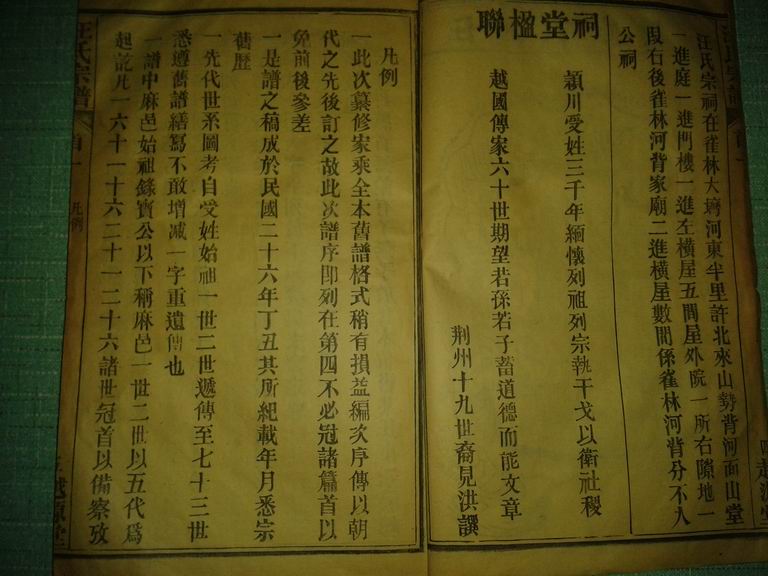 汪氏宗祠在雀林大塆河東半里許北來山勢背河面山堂
一進庭一進門樓一進左橫屋五間屋外院一所右隙地一
段右後雀林河背家廟二進橫屋數間係雀林河背分不入
公祠
祠堂楹聯
潁川受姓三千年緬懷列祖列宗執干戈以衛社稷
越國傳家六十世期望若孫若子蓄道德而能文章
荆州十九世裔見洪譔
汪氏宗譜
首一
凡例
凡例
一此次纂修家乘全本舊譜格式稍有損益編次序傳以朝
代之先後訂之故此次譜序即列在第四不必冠諸篇首以
免前後參差
一是譜之稿成於民國二十六年丁丑其所紀載年月悉宗
舊歷
一先代世系圖考自受姓始祖一世二世遞傳至七十三世
悉遵舊譜繕寫不敢增减一字重遺傳也
一譜中麻邑始祖錄寶公以下稱麻邑一世二世以五代爲
起訖凡一六十一十六二十一二十六諸世冠首以備察攷